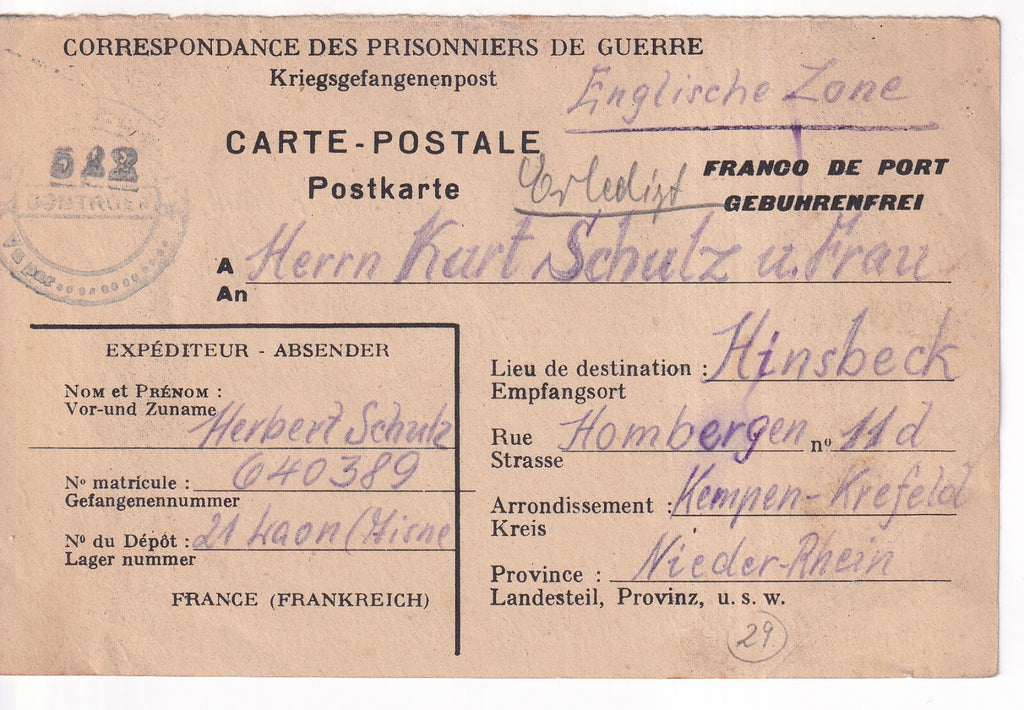 CORRESPONDANCE DES PRISONNIERS DE GUERRE
Kriegsgefangenenpost
Englische Zone
CARTE-POSTALE
Postkarte
Erledigt
FRANCO DE PORT
GEBUHRENFREI
522
A Herrn Kurt Schulz u. Frau
An
EXPÉDITEUR - ABSENDER
NOM et PRÉNOM :
Vor-und Zuname
Herbert Schulz
Nº matricule : 640389
Gefangenennummer
Nº du Dépôt : 21 Laon (Aisne
Lager nummer
FRANCE (FRANKREICH)
Lieu de destination : Hinsbeck
Empfangsort
Rue Hombergen nº 11d
Strasse
Arrondissement : Kempen-Krefeld
Kreis
Province : Nieder-Rhein
Landesteil, Provinz, u. s. w.
29